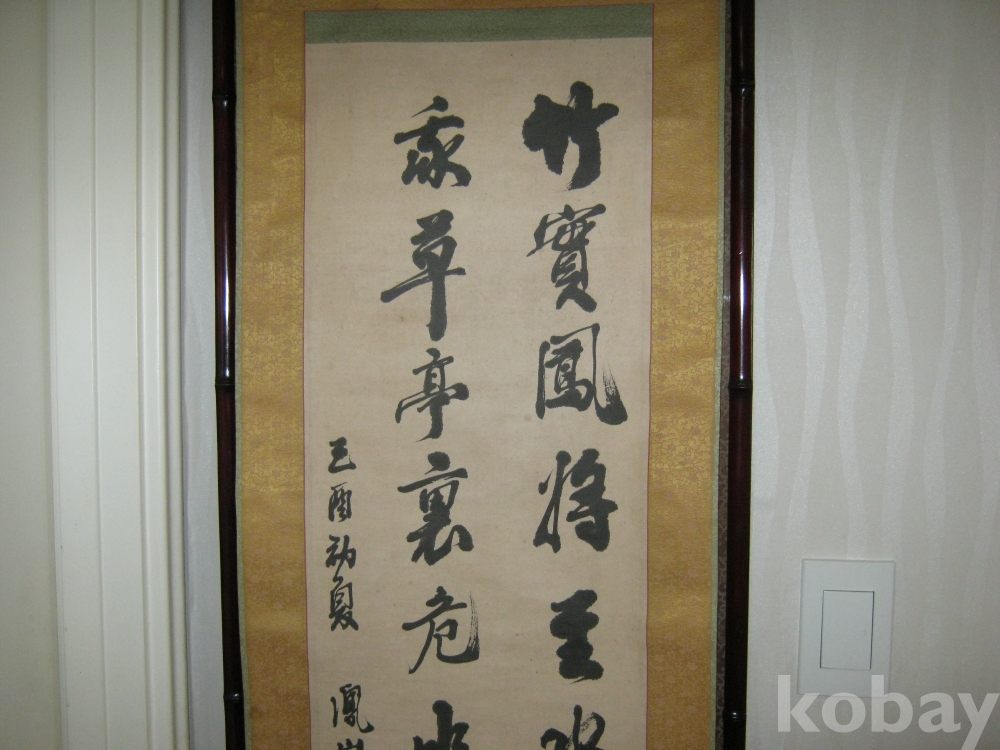 竹實鳳將至
草亭裏危
酉初夏
鳳
kobay